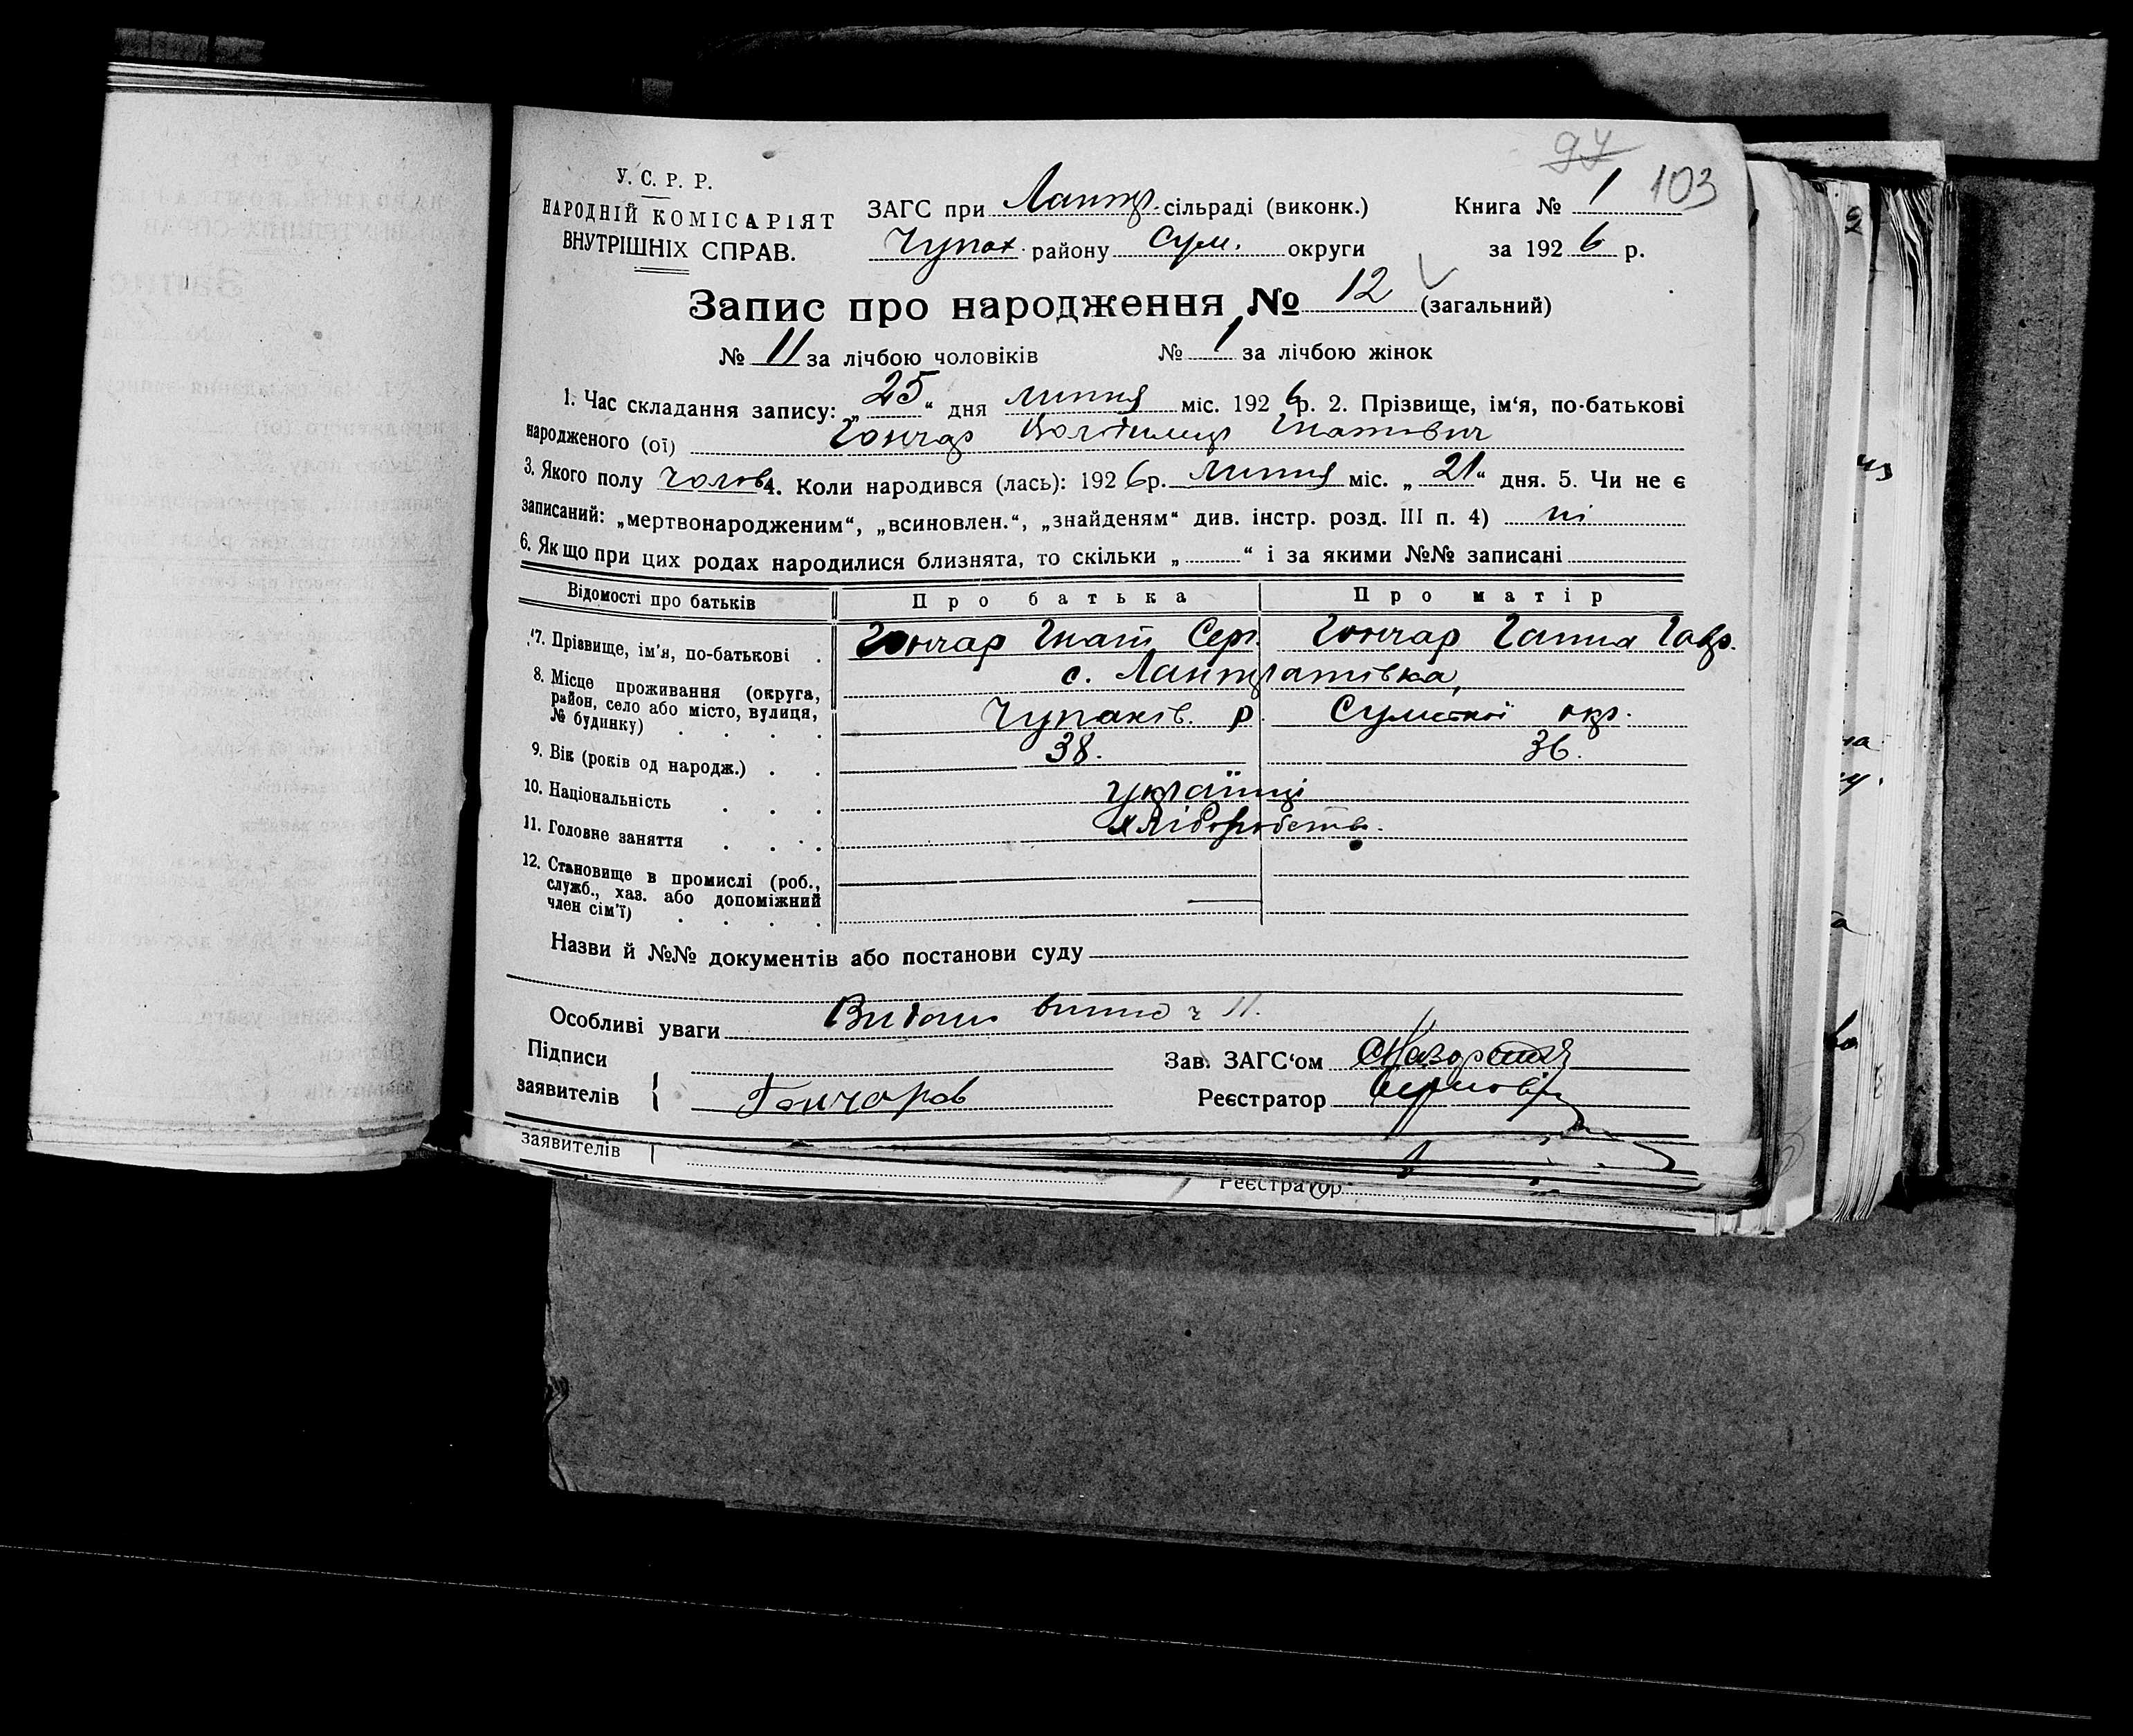 97
103
У. С. Р. Р.
НАРОДНІЙ КОМІСАРІЯТ
ВНУТРІШНІХ СПРАВ.
ЗАГС при Лантр. сільраді (виконк.) Книга № 1
Чупах. району Сум. округи за 1926 р.
Запис про народження № 12 (загальний)
№ 11 за лічбою чоловіків № 1 за лічбою жінок
1. Час складання запису: „25“ дня липня міс. 1926 р. 2. Прізвище, ім'я, по-батькові
народженого (ої) Гончар Володимир Гнатович
3. Якого полу чолов 4. Коли народився (лась): 1926 р. липня міс. „21“ дня. 5. Чи не є
записаний: „мертвонародженим“, „всиновлен.“, „знайденям“ див. інстр. розд. III п. 4) ні
6. Якщо при цих родах народилися близнята, то скільки „ “ і за якими №№ записані
Відомості про батьків Про батька Про матір
7. Прізвище, ім'я, по-батькові Гончар Гнат Серг. Гончар Ганна Гавр.
8. Місце проживання (округа, район, село або місто, вулиця, № будинку) с. Лантратівка,
Чупахів. р. Сумської окр.
9. Вік (років од народж.) 38. 36.
10. Національність українці
11. Головне заняття хліборобство.
12. Становище в промислі (роб., служб., хаз. або допоміжний член сім'ї)
Назви й №№ документів або постанови суду
Особливі уваги Видано 11.
Підписи Зав. ЗАГС'ом
заявителів { Гончаров Реєстратор
заявителів
Реєстратор